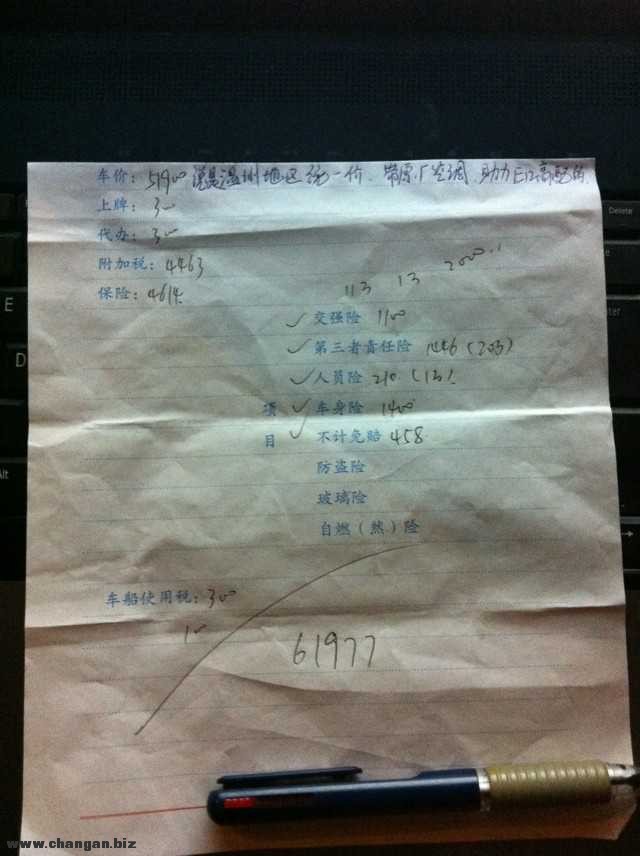 车价: 51900 说是温州地区统一价、带原厂空调、助力 E12高配的.
上牌: 300
代办: 300
附加税: 4463
保险: 4614.
11万 1万 2000..
交强险 1100
第三者责任险 1446 (20万)
人员险 210. (1万).
项 车身险 1400
目 不计免赔 458.
防盗险
玻璃险
自燃(然)险
车船使用税: 300
100
61977
Delete
E
D
Alt
www.changan.biz